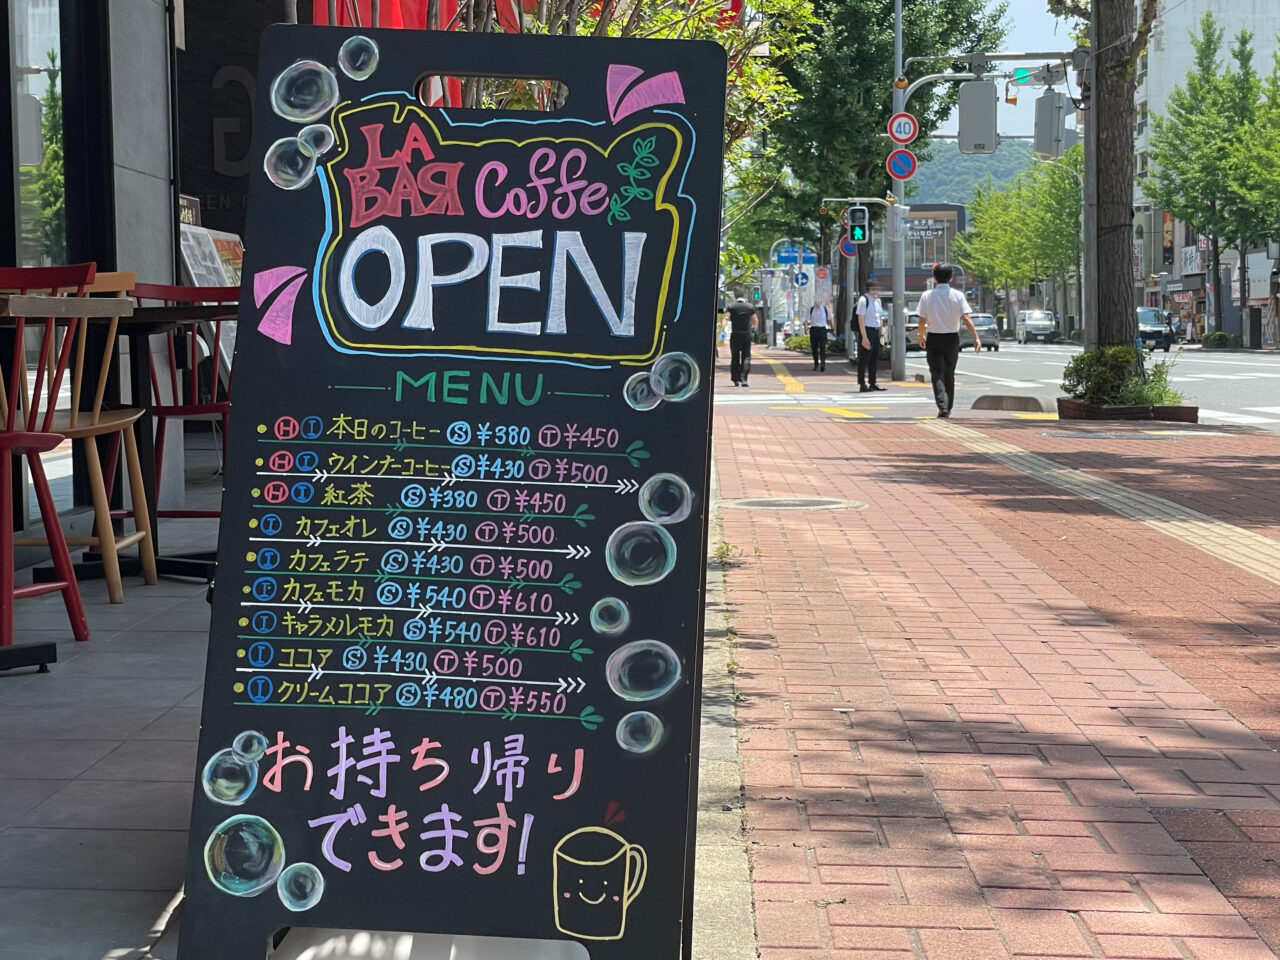 LA
BAR Coffe
OPEN
MENU
Ⓗ Ⓘ 本日のコーヒー Ⓢ ¥380 Ⓣ ¥450
Ⓗ Ⓘ ウインナーコーヒー Ⓢ ¥430 Ⓣ ¥500
Ⓗ Ⓘ 紅茶 Ⓢ ¥380 Ⓣ ¥450
Ⓘ カフェオレ Ⓢ ¥430 Ⓣ ¥500
Ⓘ カフェラテ Ⓢ ¥430 Ⓣ ¥500
Ⓘ カフェモカ Ⓢ ¥540 Ⓣ ¥610
Ⓘ キャラメルモカ Ⓢ ¥540 Ⓣ ¥610
Ⓘ ココア Ⓢ ¥430 Ⓣ ¥500
Ⓘ クリームココア Ⓢ ¥480 Ⓣ ¥550
お持ち帰り
できます!
40